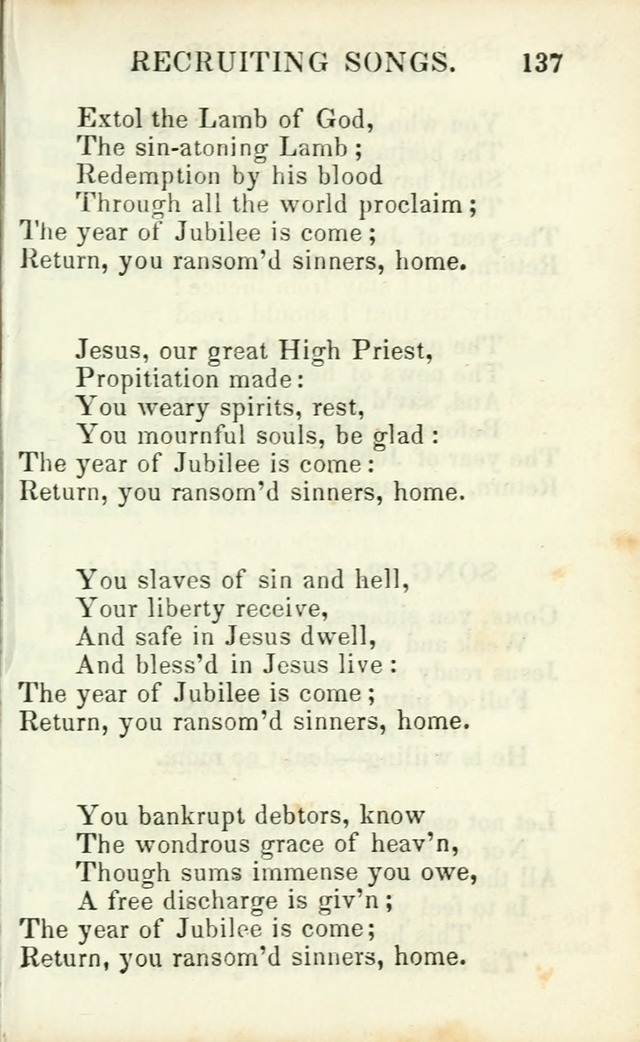 RECRUITING SONGS. 137
Extol the Lamb of God,
The sin-atoning Lamb;
Redemption by his blood
Through all the world proclaim;
The year of Jubilee is come;
Return, you ransom'd sinners, home.
Jesus, our great High Priest,
Propitiation made:
You weary spirits, rest,
You mournful souls, be glad:
The year of Jubilee is come:
Return, you ransom'd sinners, home.
You slaves of sin and hell,
Your liberty receive,
And safe in Jesus dwell,
And bless'd in Jesus live:
The year of Jubilee is come;
Return, you ransom'd sinners, home.
You bankrupt debtors, know
The wondrous grace of heav'n,
Though sums immense you owe,
A free discharge is giv'n;
The year of Jubilee is come;
Return, you ransom'd sinners, home.